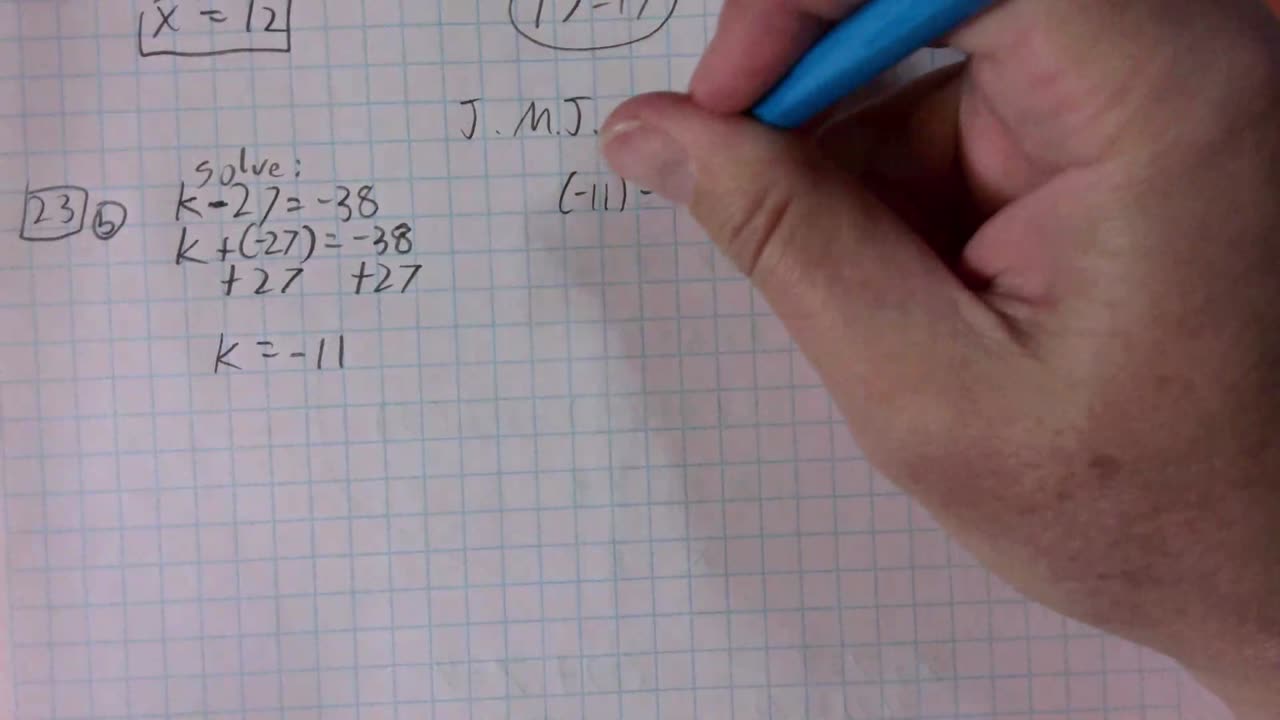 x = 12
J.M.J.
solve:
23 b k - 27 = -38
(-11) -
k + (-27) = -38
+ 27 + 27
k = -11